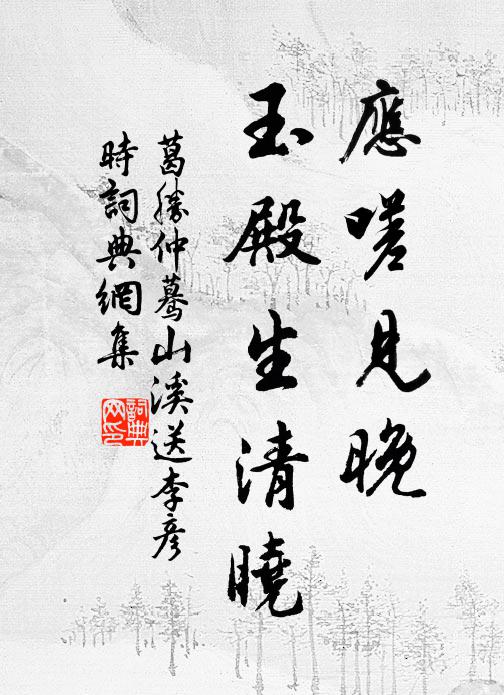 應嗟見晚
玉殿生清曉
葛勝仲驀山溪送李彥
時詞典網集
詞典
网印